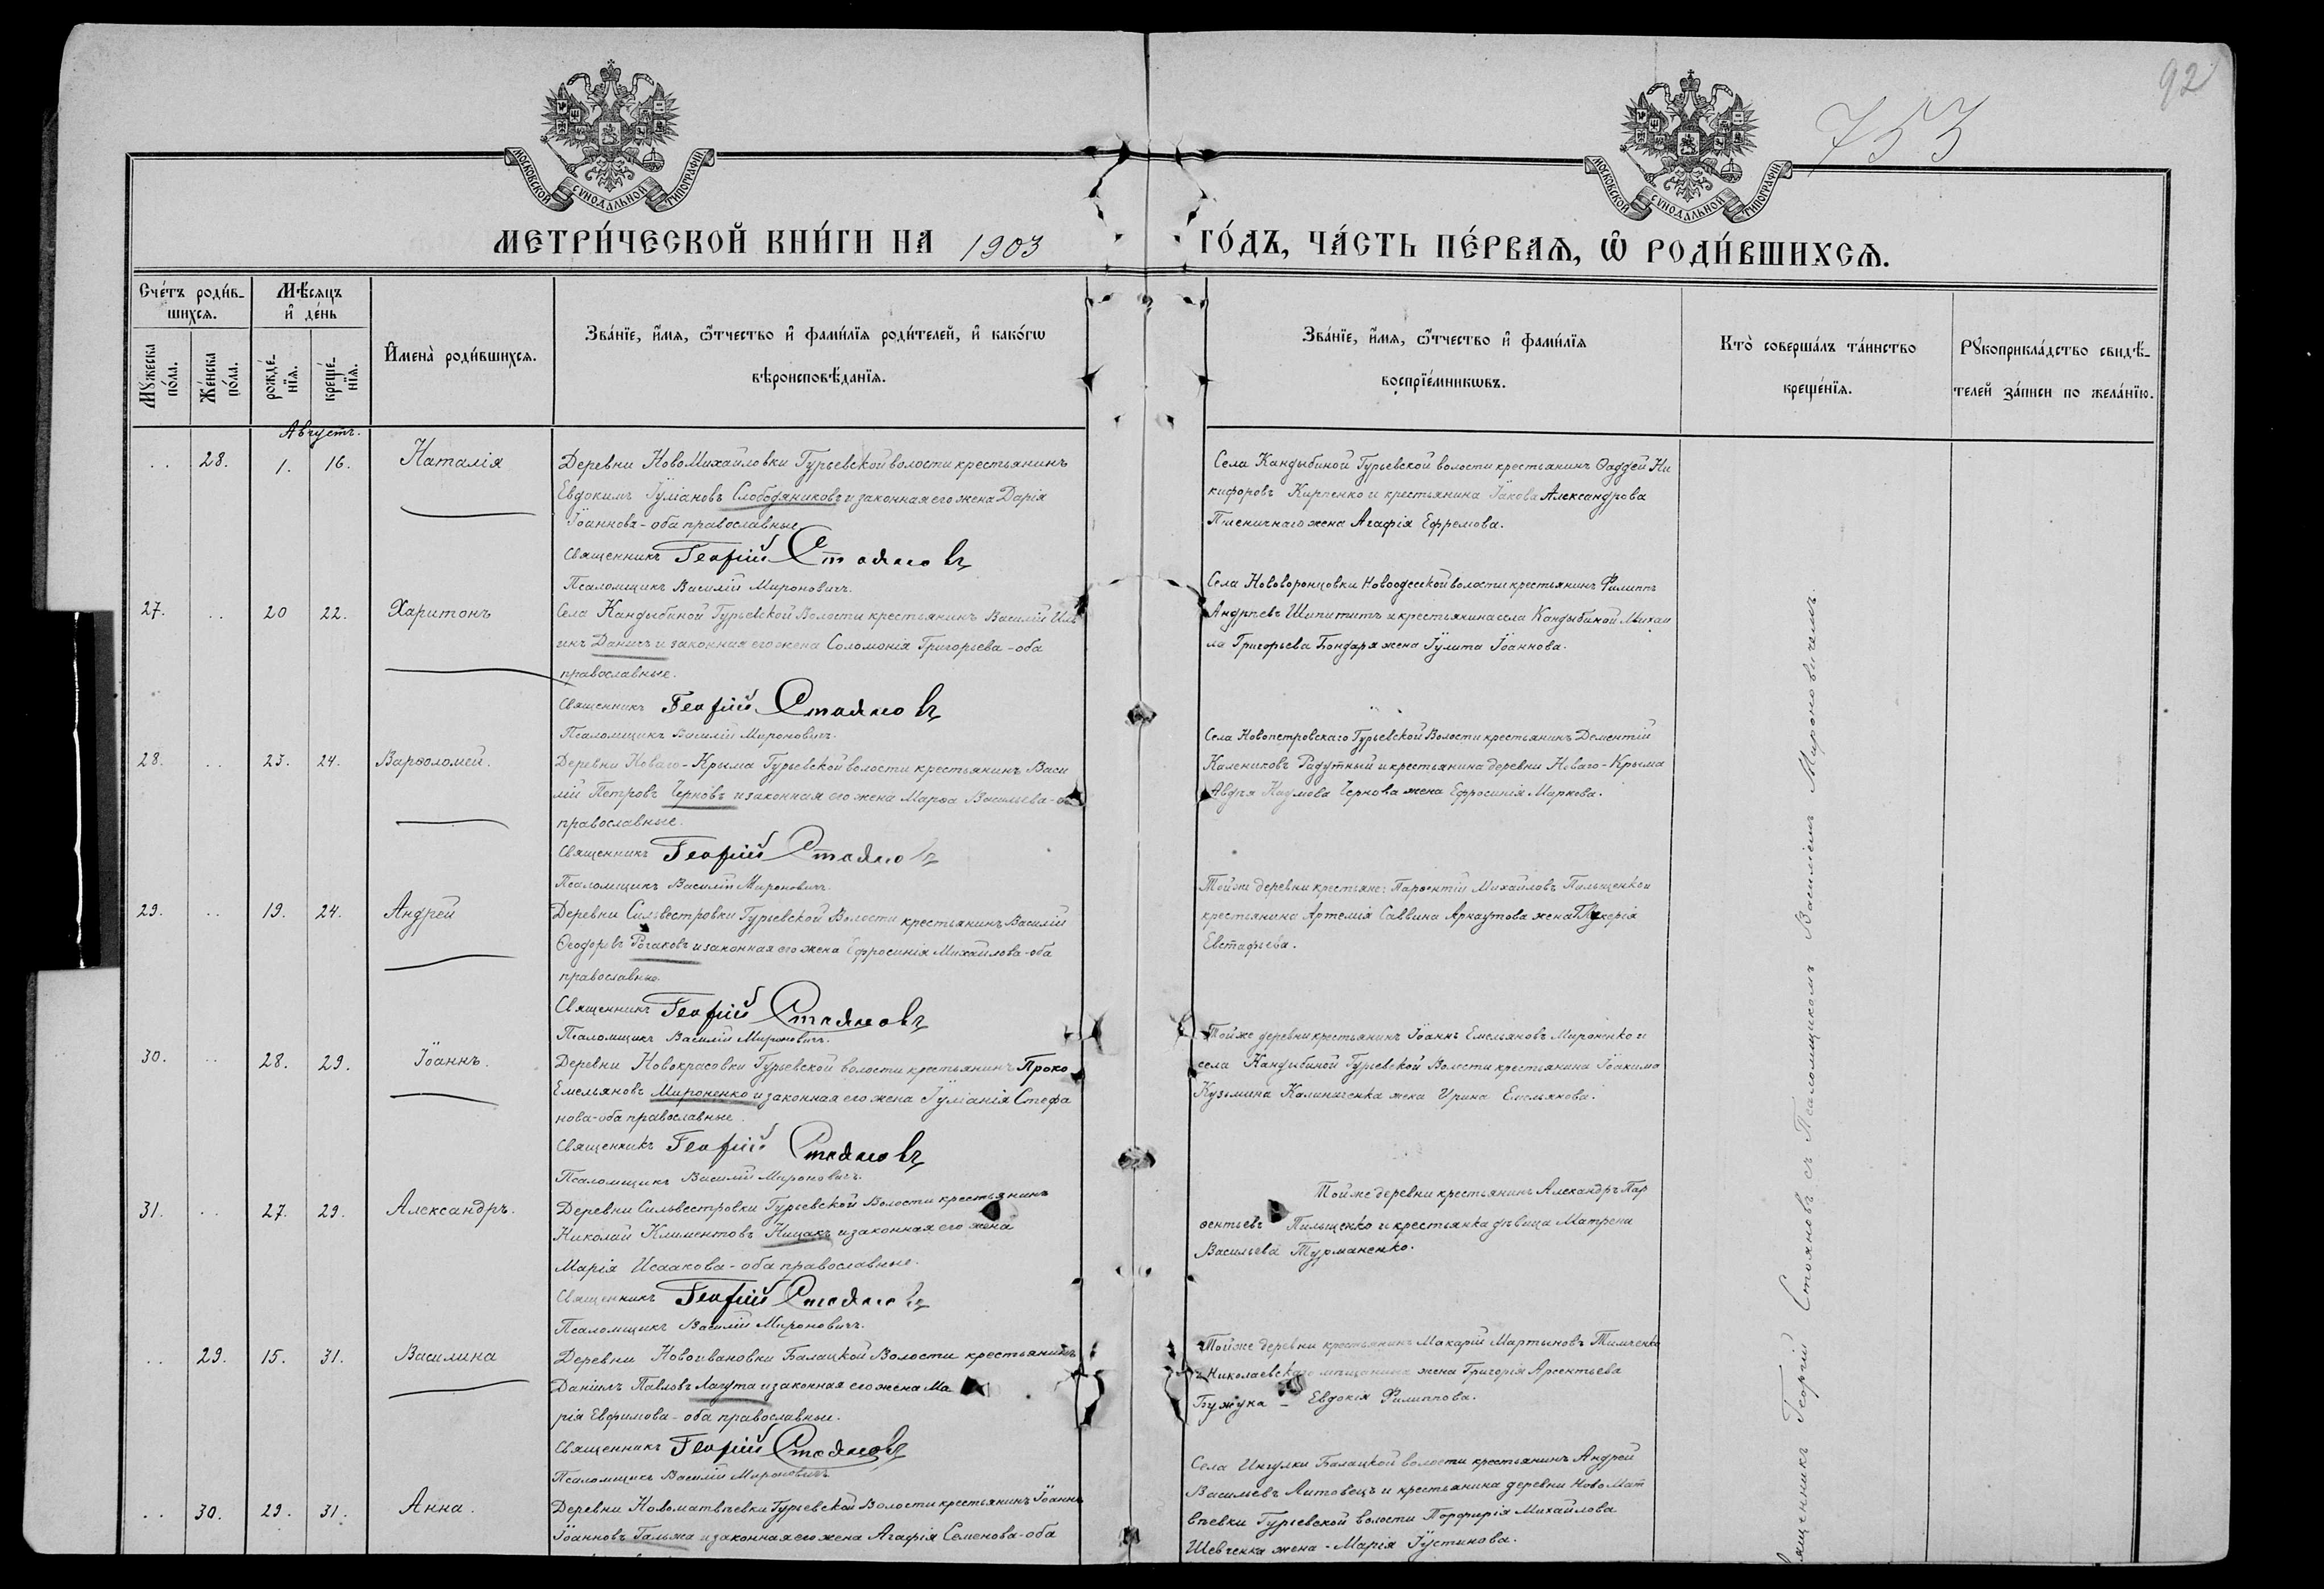 92
753
МОСКОВСКОЙ СѴНОДАЛЬНОЙ ТИПОГРАФІИ
МОСКОВСКОЙ СѴНОДАЛЬНОЙ ТИПОГРАФІИ
МЕТРИ́ЧЕСКОЙ КНИ́ГИ НА 1903
ГО́ДЪ, ЧА́СТЬ ПЕ́РВАѦ, Ѡ҆ РОДИ́ВШИХСѦ.
Сче́тъ роди́в-
шихсѧ.
Мꙋ́жеска по́ла.
Же́нска по́ла.
Мѣ́сѧцъ
и҆ де́нь
рожде́-нїѧ.
креще́-нїѧ.
И҆мена̀ роди́вшихсѧ.
Зва́нїе, и҆́мѧ, ѻ҆́тчество и҆ фами́лїѧ роди́телей, и҆ како́гѡ
вѣроисповѣ́данїѧ.
Зва́нїе, и҆́мѧ, ѻ҆́тчество и҆ фами́лїѧ
воспрїе́мникѡвъ.
Кто̀ соверша́лъ та́инство
креще́нїѧ.
Рꙋкоприкла́дство свидѣ́-
телей за́писи по жела́нїю.
Августъ.
.. 28. 1. 16. Наталія
Деревни НовоМихайловки Гурьевской волости крестьянинъ
Евдокимъ Іуліановъ Слободяниковъ и законная его жена Дарія
Іоаннова - оба православные.
Священникъ Георгій Стояновъ
Псаломщикъ Василій Мироновичъ.
Села Кандыбиной Гурьевской волости крестьянинъ Ѳаддей Ни
кифоровъ Кирпенко и крестьянина Іакова Александрова
Пшеничнаго жена Агафія Ефремова.
27. .. 20 22. Харитонъ
Села Кандыбиной Гурьевской Волости крестьянинъ Василій Иль
инъ Даничъ и законная его жена Соломонія Григорьева - оба
православные.
Священникъ Георгій Стояновъ
Псаломщикъ Василій Мироновичъ.
Села Нововоронцовки Новоодесской волости крестьянинъ Филиппъ
Андреевъ Шипититъ и крестьянина села Кандыбиной Михаи
ла Григорьева Бондаря жена Іулита Іоаннова.
28. .. 23. 24. Варѳоломей.
Деревни Новаго-Крыма Гурьевской волости крестьянинъ Васи
лій Петровъ Черновъ и законная его жена Марѳа Васильева - оба
православные.
Священникъ Георгій Стояновъ
Псаломщикъ Василій Мироновичъ.
Села Новопетровскаго Гурьевской Волости крестьянинъ Дементій
Калениковъ Радутный и крестьянина деревни Новаго-Крыма
Авдѣя Наумова Чернова жена Ефросинія Маркова.
29. .. 19. 24. Андрей
Деревни Сильвестровки Гурьевской Волости крестьянинъ Василій
Ѳеодоровъ Рогаковъ и законная его жена Ефросинія Михайлова - оба
православные.
Священникъ Георгій Стояновъ
Псаломщикъ Василій Мироновичъ.
Той же деревни крестьяне: Парѳентій Михайловъ Пильщенко и
крестьянина Артемія Саввина Аркаутова жена Гликерія
Евстафьева.
30. .. 28. 29. Іоаннъ.
Деревни Новокрасовки Гурьевской волости крестьянинъ Проко
Емельяновъ Мироненко и законная его жена Іуліанія Стефа
нова - оба православные.
Священникъ Георгій Стояновъ
Псаломщикъ Василій Мироновичъ.
Той же деревни крестьянинъ Іоаннъ Емельяновъ Мироненко и
села Кандыбиной Гурьевской Волости крестьянина Іоакима
Кузьмина Калиниченка жена Ирина Емельянова.
31. .. 27. 29. Александръ.
Деревни Сильвестровки Гурьевской Волости крестьянинъ
Николай Климентовъ Ницакъ и законная его жена
Марія Исаакова - оба православные.
Священникъ Георгій Стояновъ
Псаломщикъ Василій Мироновичъ.
Той же деревни крестьянинъ Александръ Пар
ѳентьевъ Пильщенко и крестьянка дѣвица Матрена
Васильева Турманенко.
.. 29. 15. 31. Василина
Деревни Новоивановки Балацкой Волости крестьянинъ
Даніилъ Павловъ Лагута и законная его жена Ма
рія Евфимова - оба православные.
Священникъ Георгій Стояновъ
Псаломщикъ Василій Мироновичъ.
Той же деревни крестьянинъ Макарій Мартыновъ Тимченко
и Николаевскаго мѣщанина жена Григорія Арсентьева
Гужука - Евдокія Филиппова.
.. 30. 29. 31. Анна.
Деревни Новоматвѣевки Гурьевской Волости крестьянинъ Іоаннъ
Іоанновъ Гальжа и законная его жена Агафія Семенова - оба
Села Ингулки Балацкой волости крестьянинъ Андрей
Васильевъ Литовецъ и крестьянина деревни НовоМат
вѣевки Гурьевской волости Порфирія Михайлова
Шевченка жена - Марія Іустинова.
Священникъ Георгій Стояновъ съ Псаломщикомъ Василіемъ Мироновичемъ.